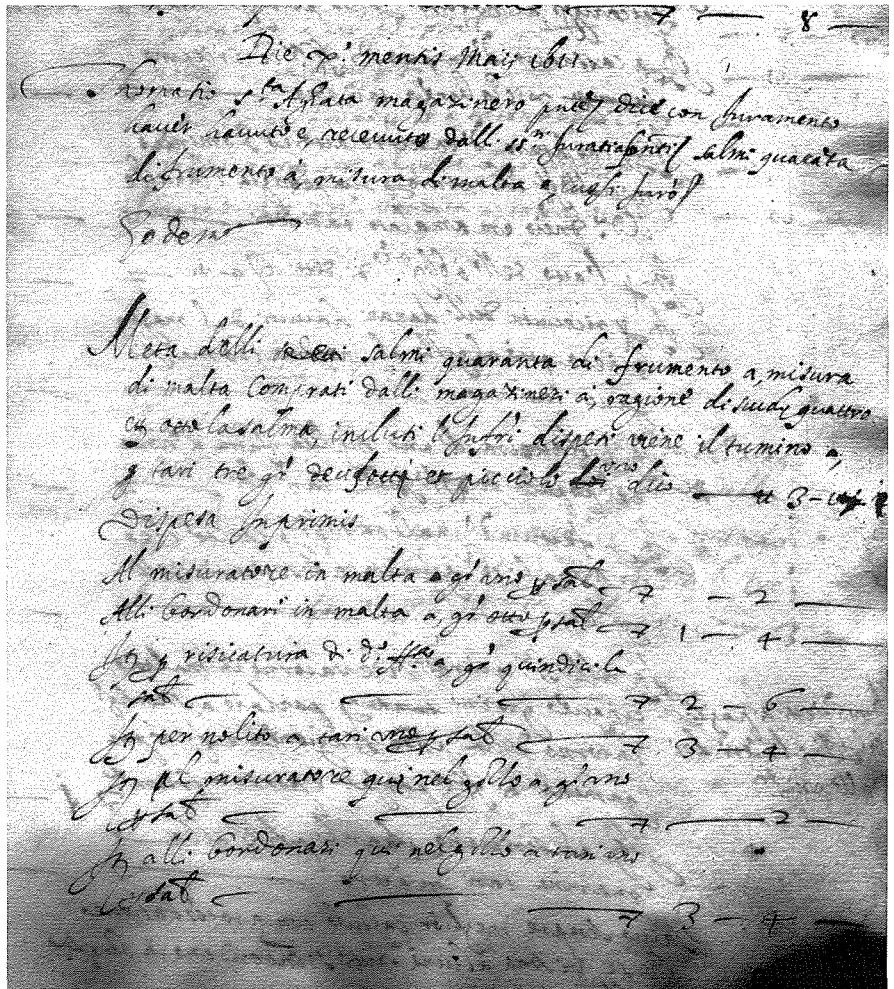 7 — 8
Die x.º mensis Maii 1611
Thomasio s.ta Agata magazinero dice con Juramento
haver havuto e recevuto dalli ss.ri Jurati salmi quaranta
di frumento a, misura di malta
Eodem
Meta delli salmi quaranta di frumento a, misura
di malta Comprati dalli magazineri a, ragione di scudi quattro
et otto la salma, inclusi l'infri dispesi viene il tumino a,
tari tre gr. decisotti et piccioli dui
Dispesa Inprimis
Al misuratore in malta a gr. uno p sal. — 7 — 2 —
Alli bordonari in malta a, gr. otto p sal. — 7 1 — 4 —
It. p risicatura di d.º a, gr. quindici la
sal. — 7 2 — 6 —
It. per nolito a tari uno p sal. — 7 3 — 4 —
It. al misuratore qui nel gozzo a, gr. uno
p sal. — 7 — 2 —
It. alli bordonari qui nel gozzo a tari uno
p sal. — 7 3 — 4 —